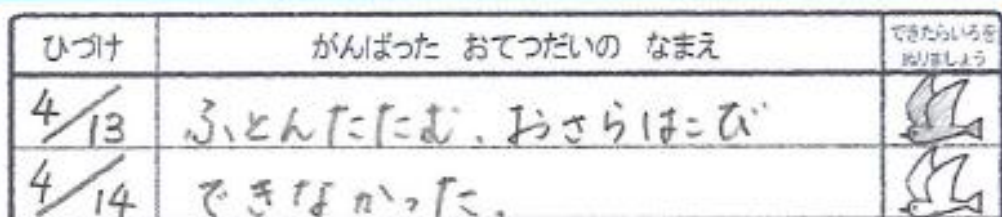 ひづけ がんばった おてつだいの なまえ できたらいろを
ぬりましょう
4/13 ふとんたたむ、おさらはこび
4/14 できなかった。